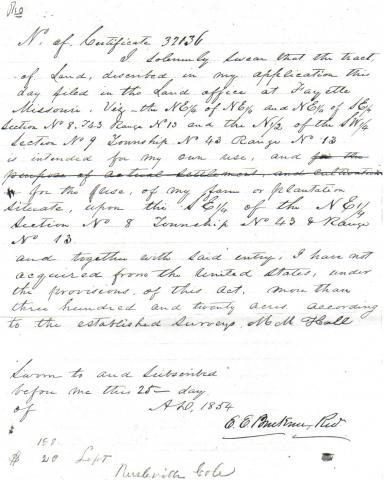 No. of Certificate 37136
I solemnly swear that the tract
of Land, discribed in my application this
day filed in the Land office at Fayette
Missouri. Viz - the NE¼ of NE¼ and NE¼ of SE¼
Section No 8. T43 Range No 13 and the N/2 of the SW/4
Section No 9 Township No 43 Range No 13
is intended for my own use, and for the
purpose of actual settlement, and cultivation
for the use, of my farm or plantation
situate, upon the SE¼ of the NE¼
Section No 8 Township No 43 & Range
No 13.
and together with said entry, I have not
acquired from the United States, under
the provisions of this act, more than
three hundred and twenty acres according
to the established Surveys. M M Hall
Sworn to and Subscribed
before me this 25 day
of A.D. 1854
$ 20 Sept